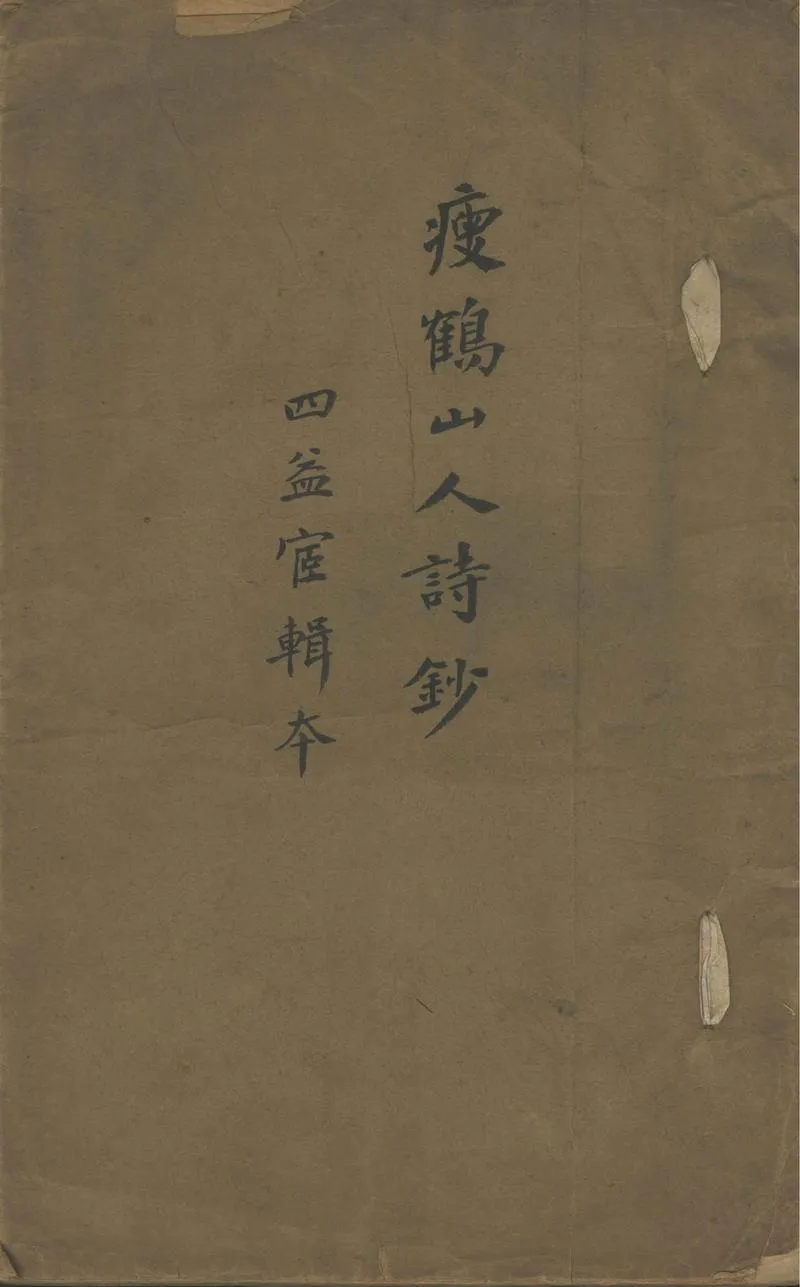 瘦鶴山人詩鈔
四益宧輯本